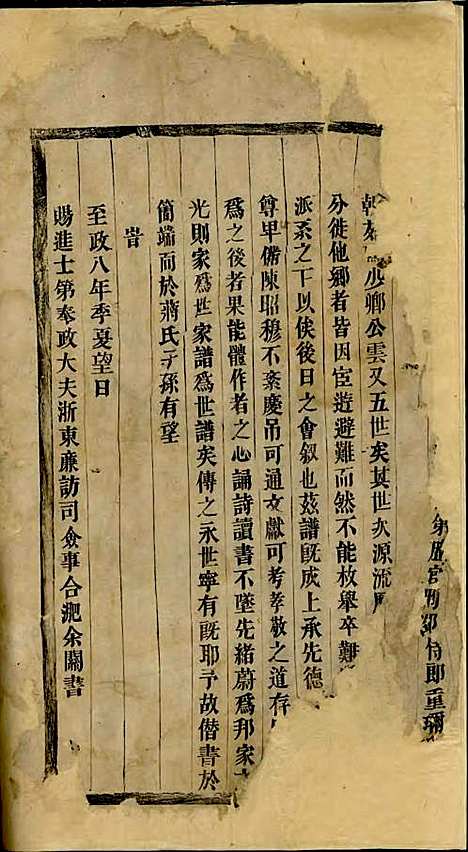 第五官刑部侍郎重
少卿公雲又五世矣其世次源流
分徙他鄉者皆因宦遊避難而然不能枚舉卒難
派系之下以俟後日之會叙也茲譜既成上承先德
尊卑備陳昭穆不紊慶吊可通文獻可考孝敬之道存
爲之後者果能體作者之心誦詩讀書不墜先緒蔚爲邦家
光則家爲世家譜爲世譜矣傳之永世寧有既耶予故僭書於
簡端而於蔣氏子孫有望
旹
至政八年季夏望日
賜進士第奉政大夫浙東廉訪司僉事合淝余闕書